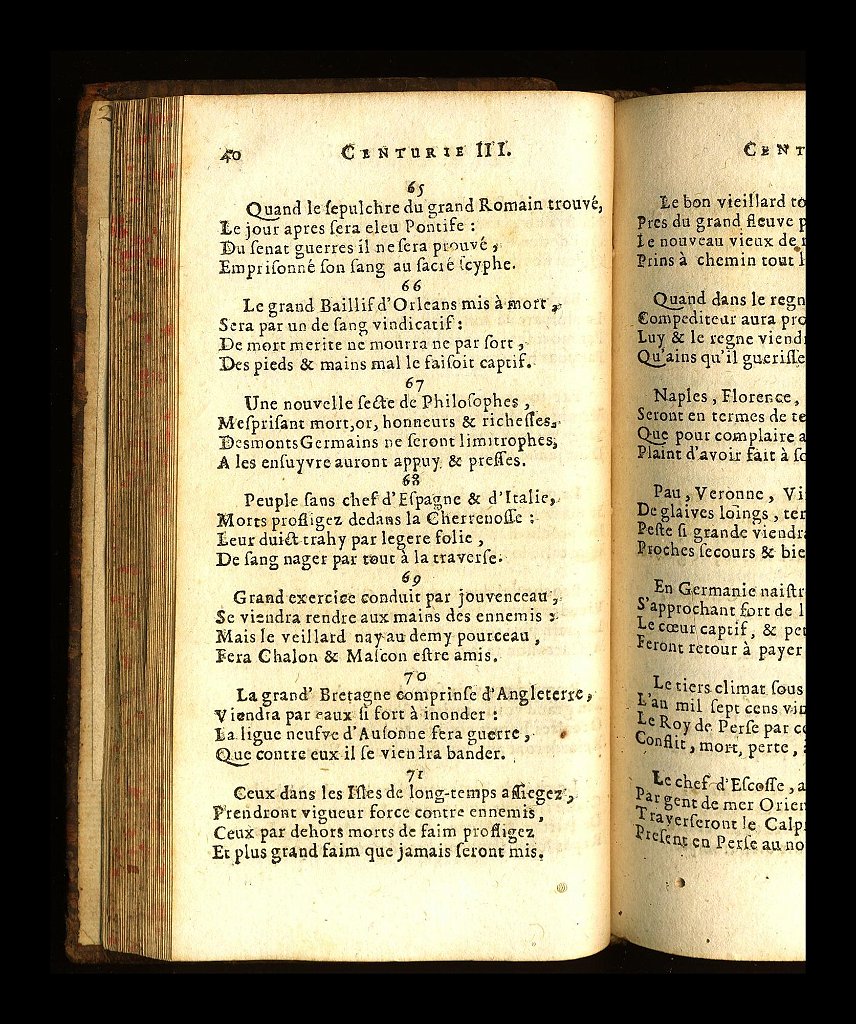 40 CENTURIE III.
65
Quand le ſepulchre du grand Romain trouvé,
Le jour apres ſera eleu Pontife :
Du ſenat guerres il ne ſera prouvé,
Empriſonné ſon ſang au ſacré ſcyphe.
66
Le grand Baillif d'Orleans mis à mort,
Sera par un de ſang vindicatif :
De mort merite ne mourra ne par ſort,
Des pieds & mains mal le faiſoit captif.
67
Une nouvelle ſecte de Philoſophes,
Meſpriſant mort, or, honneurs & richeſſes,
Desmonts Germains ne ſeront limitrophes,
A les enſuyvre auront appuy & preſſes.
68
Peuple ſans chef d'Eſpagne & d'Italie,
Morts profligez dedans la Cherrenoſſe :
Leur duict trahy par legere folie,
De ſang nager par tout à la traverſe.
69
Grand exercice conduit par jouvenceau,
Se viendra rendre aux mains des ennemis :
Mais le veillard nay au demy pourceau,
Fera Chalon & Maſcon eſtre amis.
70
La grand' Bretagne comprinſe d'Angleterre,
Viendra par eaux ſi fort à inonder :
La ligue neufve d'Auſonne fera guerre,
Que contre eux il ſe viendra bander.
71
Ceux dans les Iſles de long-temps aſſiegez,
Prendront vigueur force contre ennemis,
Ceux par dehors morts de faim profligez
Et plus grand faim que jamais ſeront mis.
CENT
Le bon vieillard
Pres du grand fleuve
Le nouveau vieux de
Prins à chemin tout
Quand dans le regn
Compediteur aura
Luy & le regne
Qu'ains qu'il gueriſſe
Naples, Florence,
Seront en termes de
Que pour complaire
Plaint d'avoir fait à
Pau, Veronne,
De glaives loings,
Peſte ſi grande
Proches ſecours &
En Germanie
S'approchant fort de
Le cœur captif, &
Feront retour à payer
Le tiers climat ſous
L'an mil ſept cens
Le Roy de Perſe par
Conflit, mort, perte,
Le chef d'Eſcoſſe,
Par gent de mer
Traverſeront le
Preſent en Perſe au